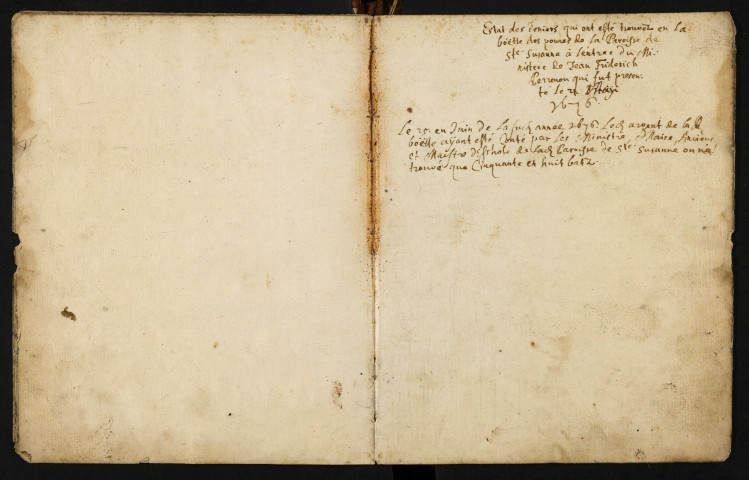 Estat des deniers qui ont esté trouvez en la
böette des povres de la Paroisse de
Ste Susanne à lentree du Mi-
nistere de Jean Friderich
Perrenon qui fut presen-
té le 21 May
1676.
Le 25. en Juin de la susd. annee 1676. Led. argent de lad.
böette ayant esté conté par les Ministre, Maire Anciens
et Maistre d'eschole de lad. Paroisse de Ste Susanne on n'a
trouvé que Cinquante et huit batz.